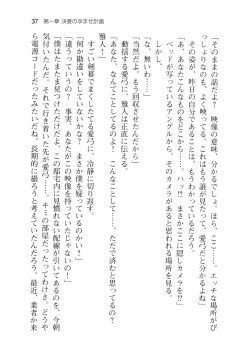 37　第一章 決意の孕ませ計画
「そのままの話だよ！　映像の意味、分かるでしょ。ほら、ここ……エッチな場所がび
っしょりなのも、よく映ってる。これはもう誰が見たって、愛弓だと分かるよね」
　その姿が、昨日の自分であることは、もうわかっているだろう。
「あ、あなたこんなもの……ハッ!?　まさかここに隠しカメラを!?」
　映っているアングルから、そのカメラがあると思われる場所を見る。
「な、無いわ……」
　当然だ。もう回収しているのだから。
　動揺する愛弓に、雅人は正直に伝える。
「ああ……なんてことするの……こんなことして……ただで済むと思ってるの？
雅人！」
　すごい剣幕でまくしたてる愛弓に、冷静に切り返す。
「何か勘違いをしていないか？　まさか僕を疑っているのかい？」
「違うっていうの？　事実、あなたがこの映像を持っているじゃない！」
「僕もたまたま見つけただけだよ。この部屋内に見慣れない配線が引いてあるのを、今朝
気付いたんだ。それで行き着いた先が愛弓……キミの部屋だった。たってわけさ。どうや
ら電源コードだったみたいなんだよね。長期的に撮ろうと考えていたんだろう。最近、業者か来